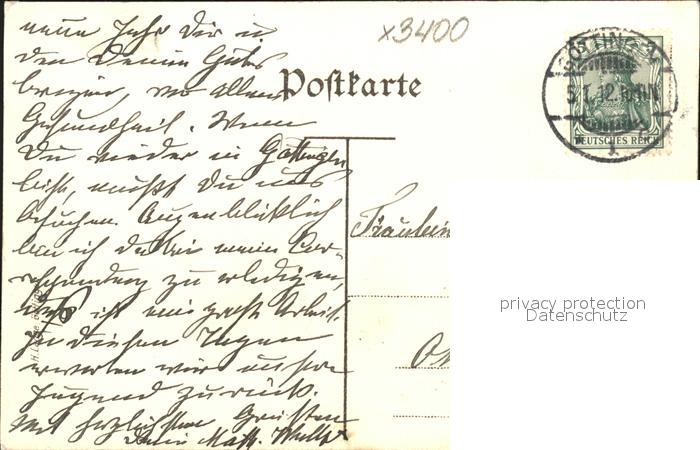 x3400
neue Jahr Dir u.
den Deinen Gutes
bringen, vor allem
Postkarte
Gesundheit. Wenn
Du wieder in Göttingen
bist, mußt Du uns
besuchen. Augenblicklich
bin ich dabei meine Cor-
respondenz zu erledigen,
das ist eine große Arbeit.
In diesen Tagen
erwarten wir unsere
Jugend zurück.
Mit herzlichsten Grüßen
Deine Math.
GÖTTINGEN
5.1.12
DEUTSCHES REICH
Fräulein
privacy protection
Datenschutz